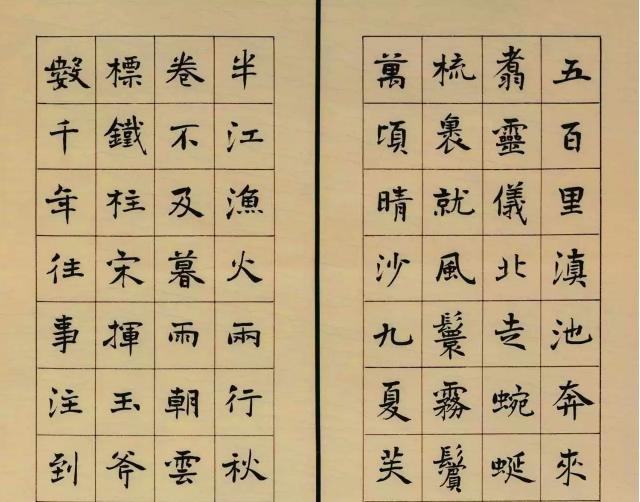 五百里滇池奔來
翥靈儀北走蜿蜒
梳裹就風鬟霧鬢
萬頃晴沙九夏芙
半江漁火兩行秋
卷不及暮雨朝雲
標鐵柱宋揮玉斧
數千年往事注到